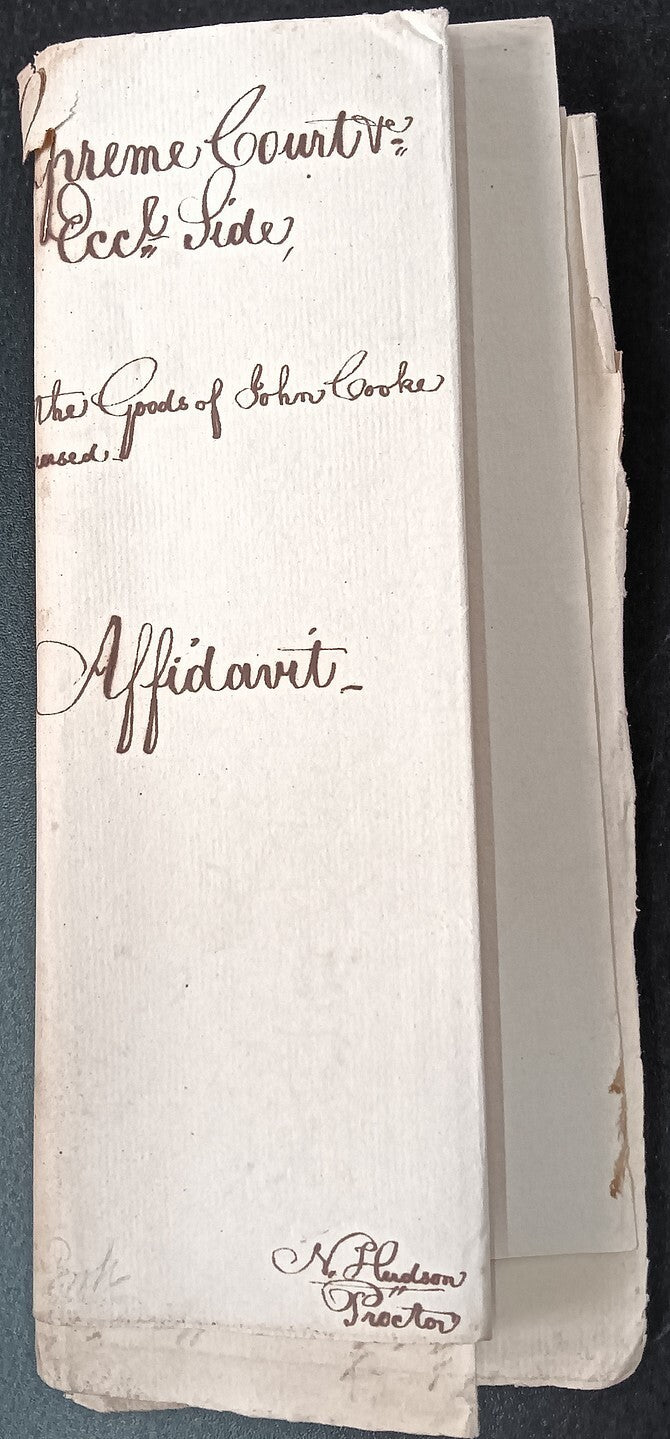 preme Court &c
Eccl. Side,
the Goods of John Cooke
eased.
Affidavit_
N. Hudson
Proctor